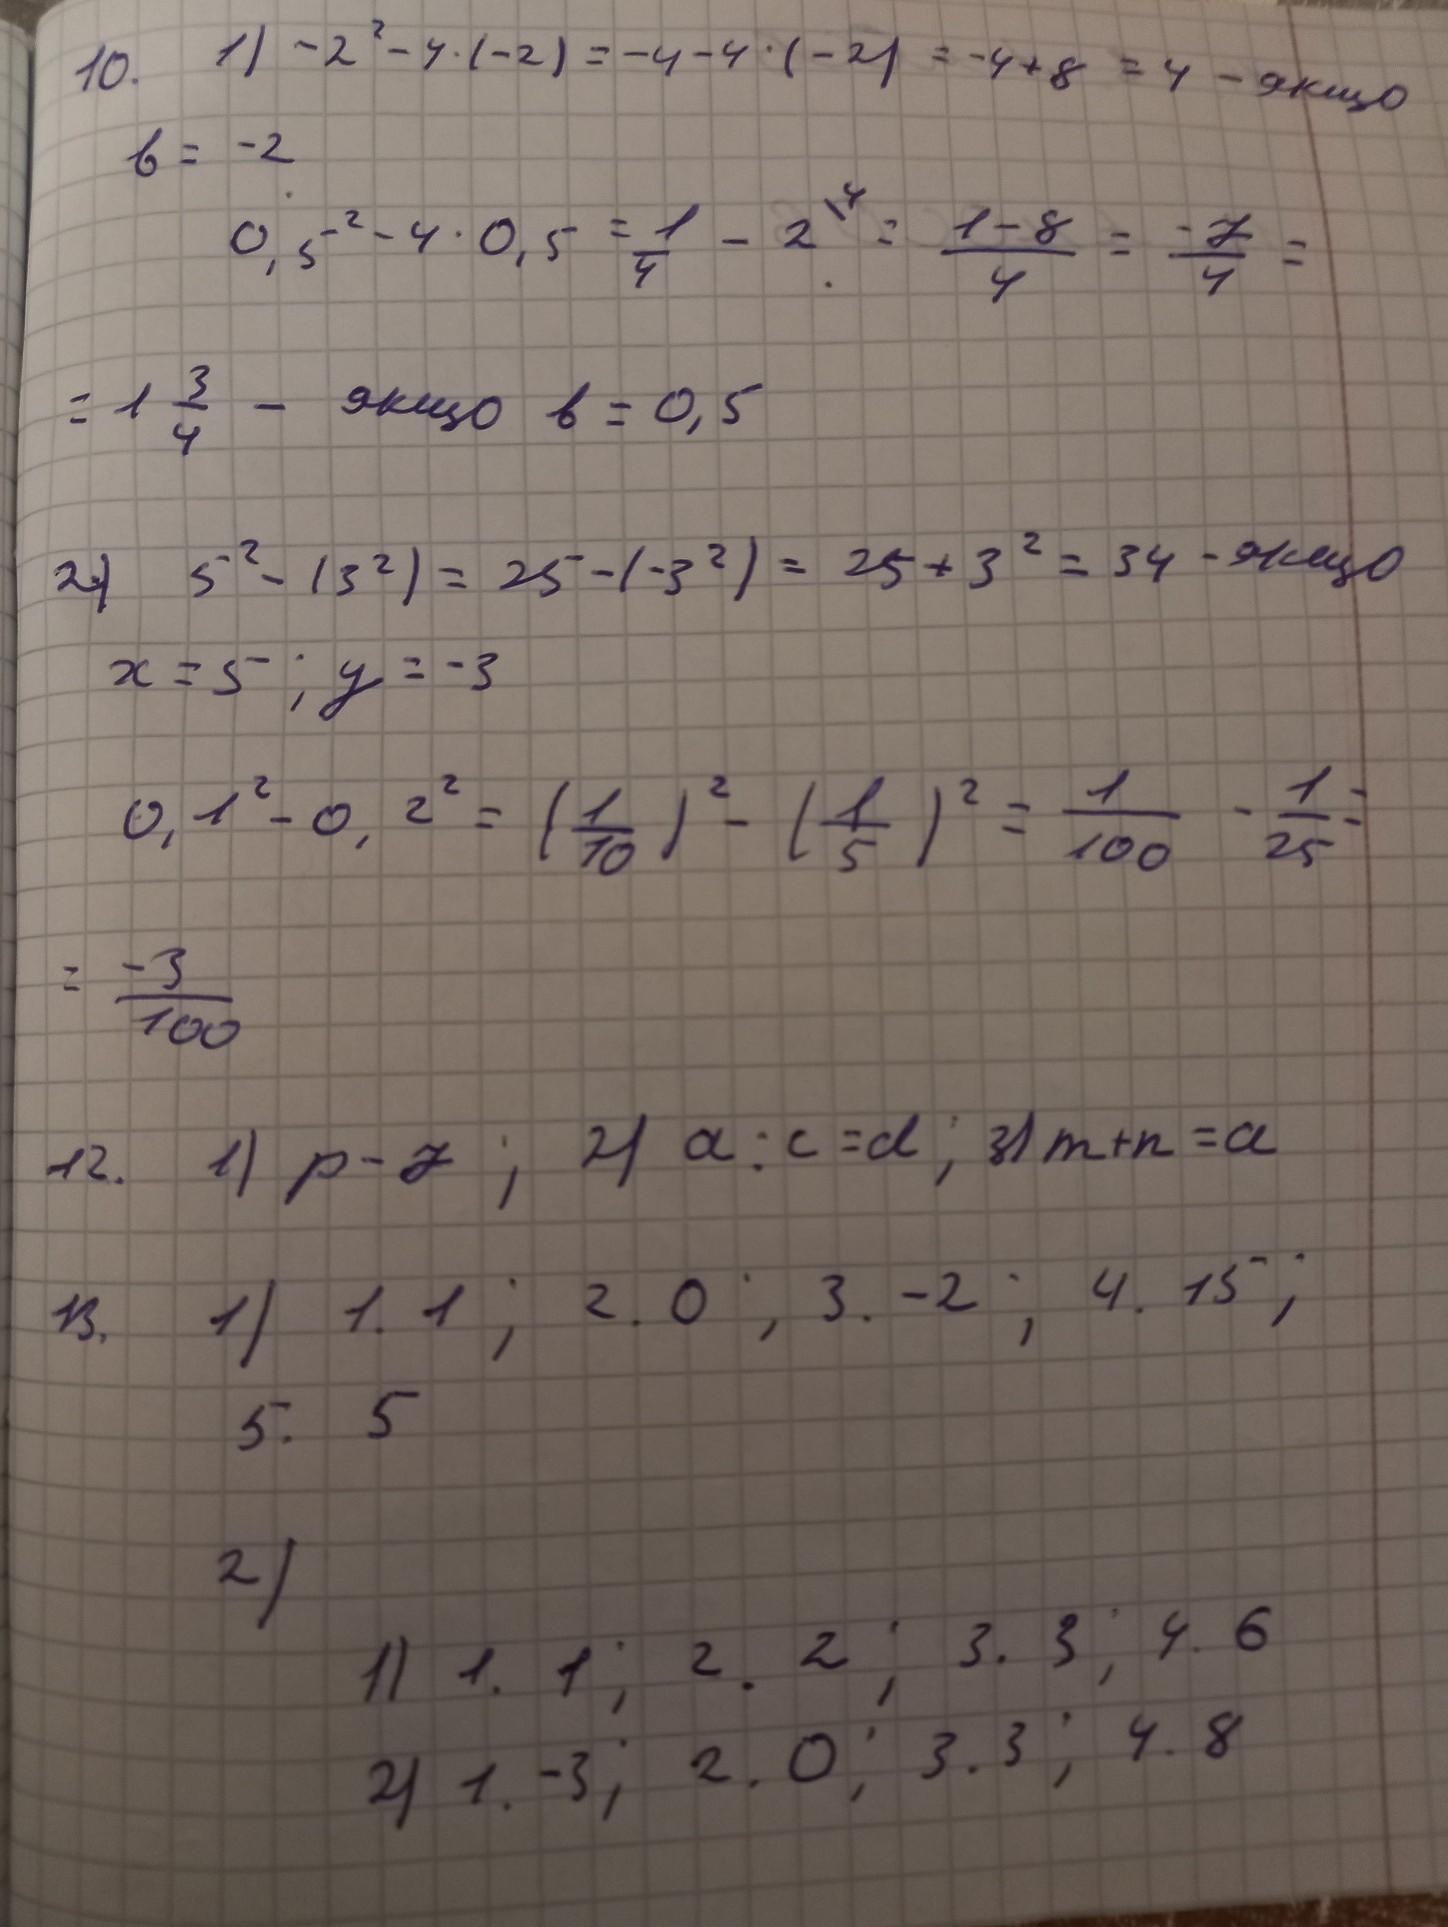 10. 1) -2² - 4·(-2) = -4 - 4·(-2) = -4+8 = 4 - якщо
b = -2
0,5² - 4·0,5 = 1/4 - 2\4 = (1-8)/4 = -7/4 =
= 1 3/4 - якщо b = 0,5
2) 5² - (3²) = 25 - (-3²) = 25 + 3² = 34 - якщо
x = 5; y = -3
0,1² - 0,2² = (1/10)² - (1/5)² = 1/100 - 1/25 =
= -3/100
12. 1) p - 7; 2) a : c = d; 3) m+n = a
13. 1) 1. 1; 2. 0; 3. -2; 4. 15;
5. 5
2)
1) 1. 1; 2. 2; 3. 3; 4. 6
2) 1. -3; 2. 0; 3. 3; 4. 8